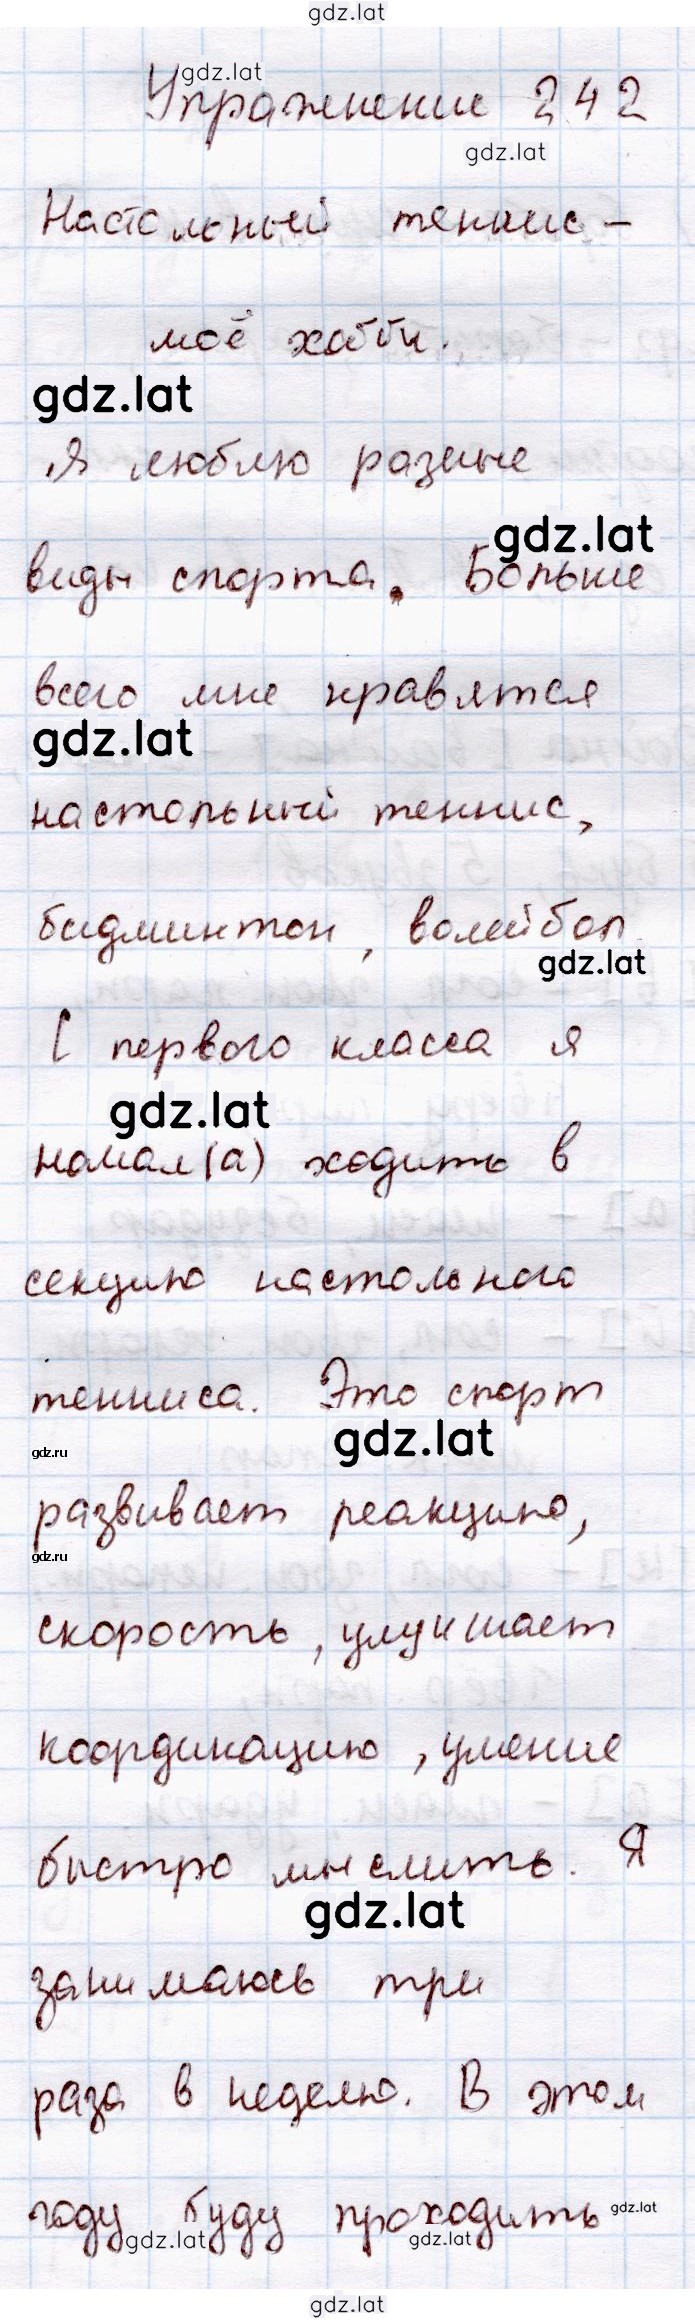 gdz.lat
gdz.lat
Упражнение 242
gdz.lat
Настольный теннис –
моё хобби.
gdz.lat
Я люблю разные
gdz.lat
виды спорта. Больше
всего мне нравятся
gdz.lat
настольный теннис,
бадминтон, волейбол.
gdz.lat
С первого класса я
gdz.lat
начал(а) ходить в
секцию настольного
тенниса. Это спорт
gdz.lat
gdz.ru
развивает реакцию,
gdz.ru
скорость, улучшает
координацию, умение
быстро мыслить. Я
gdz.lat
занимаюсь три
раза в неделю. В этом
году буду проходить
gdz.lat
gdz.lat
gdz.lat
gdz.lat